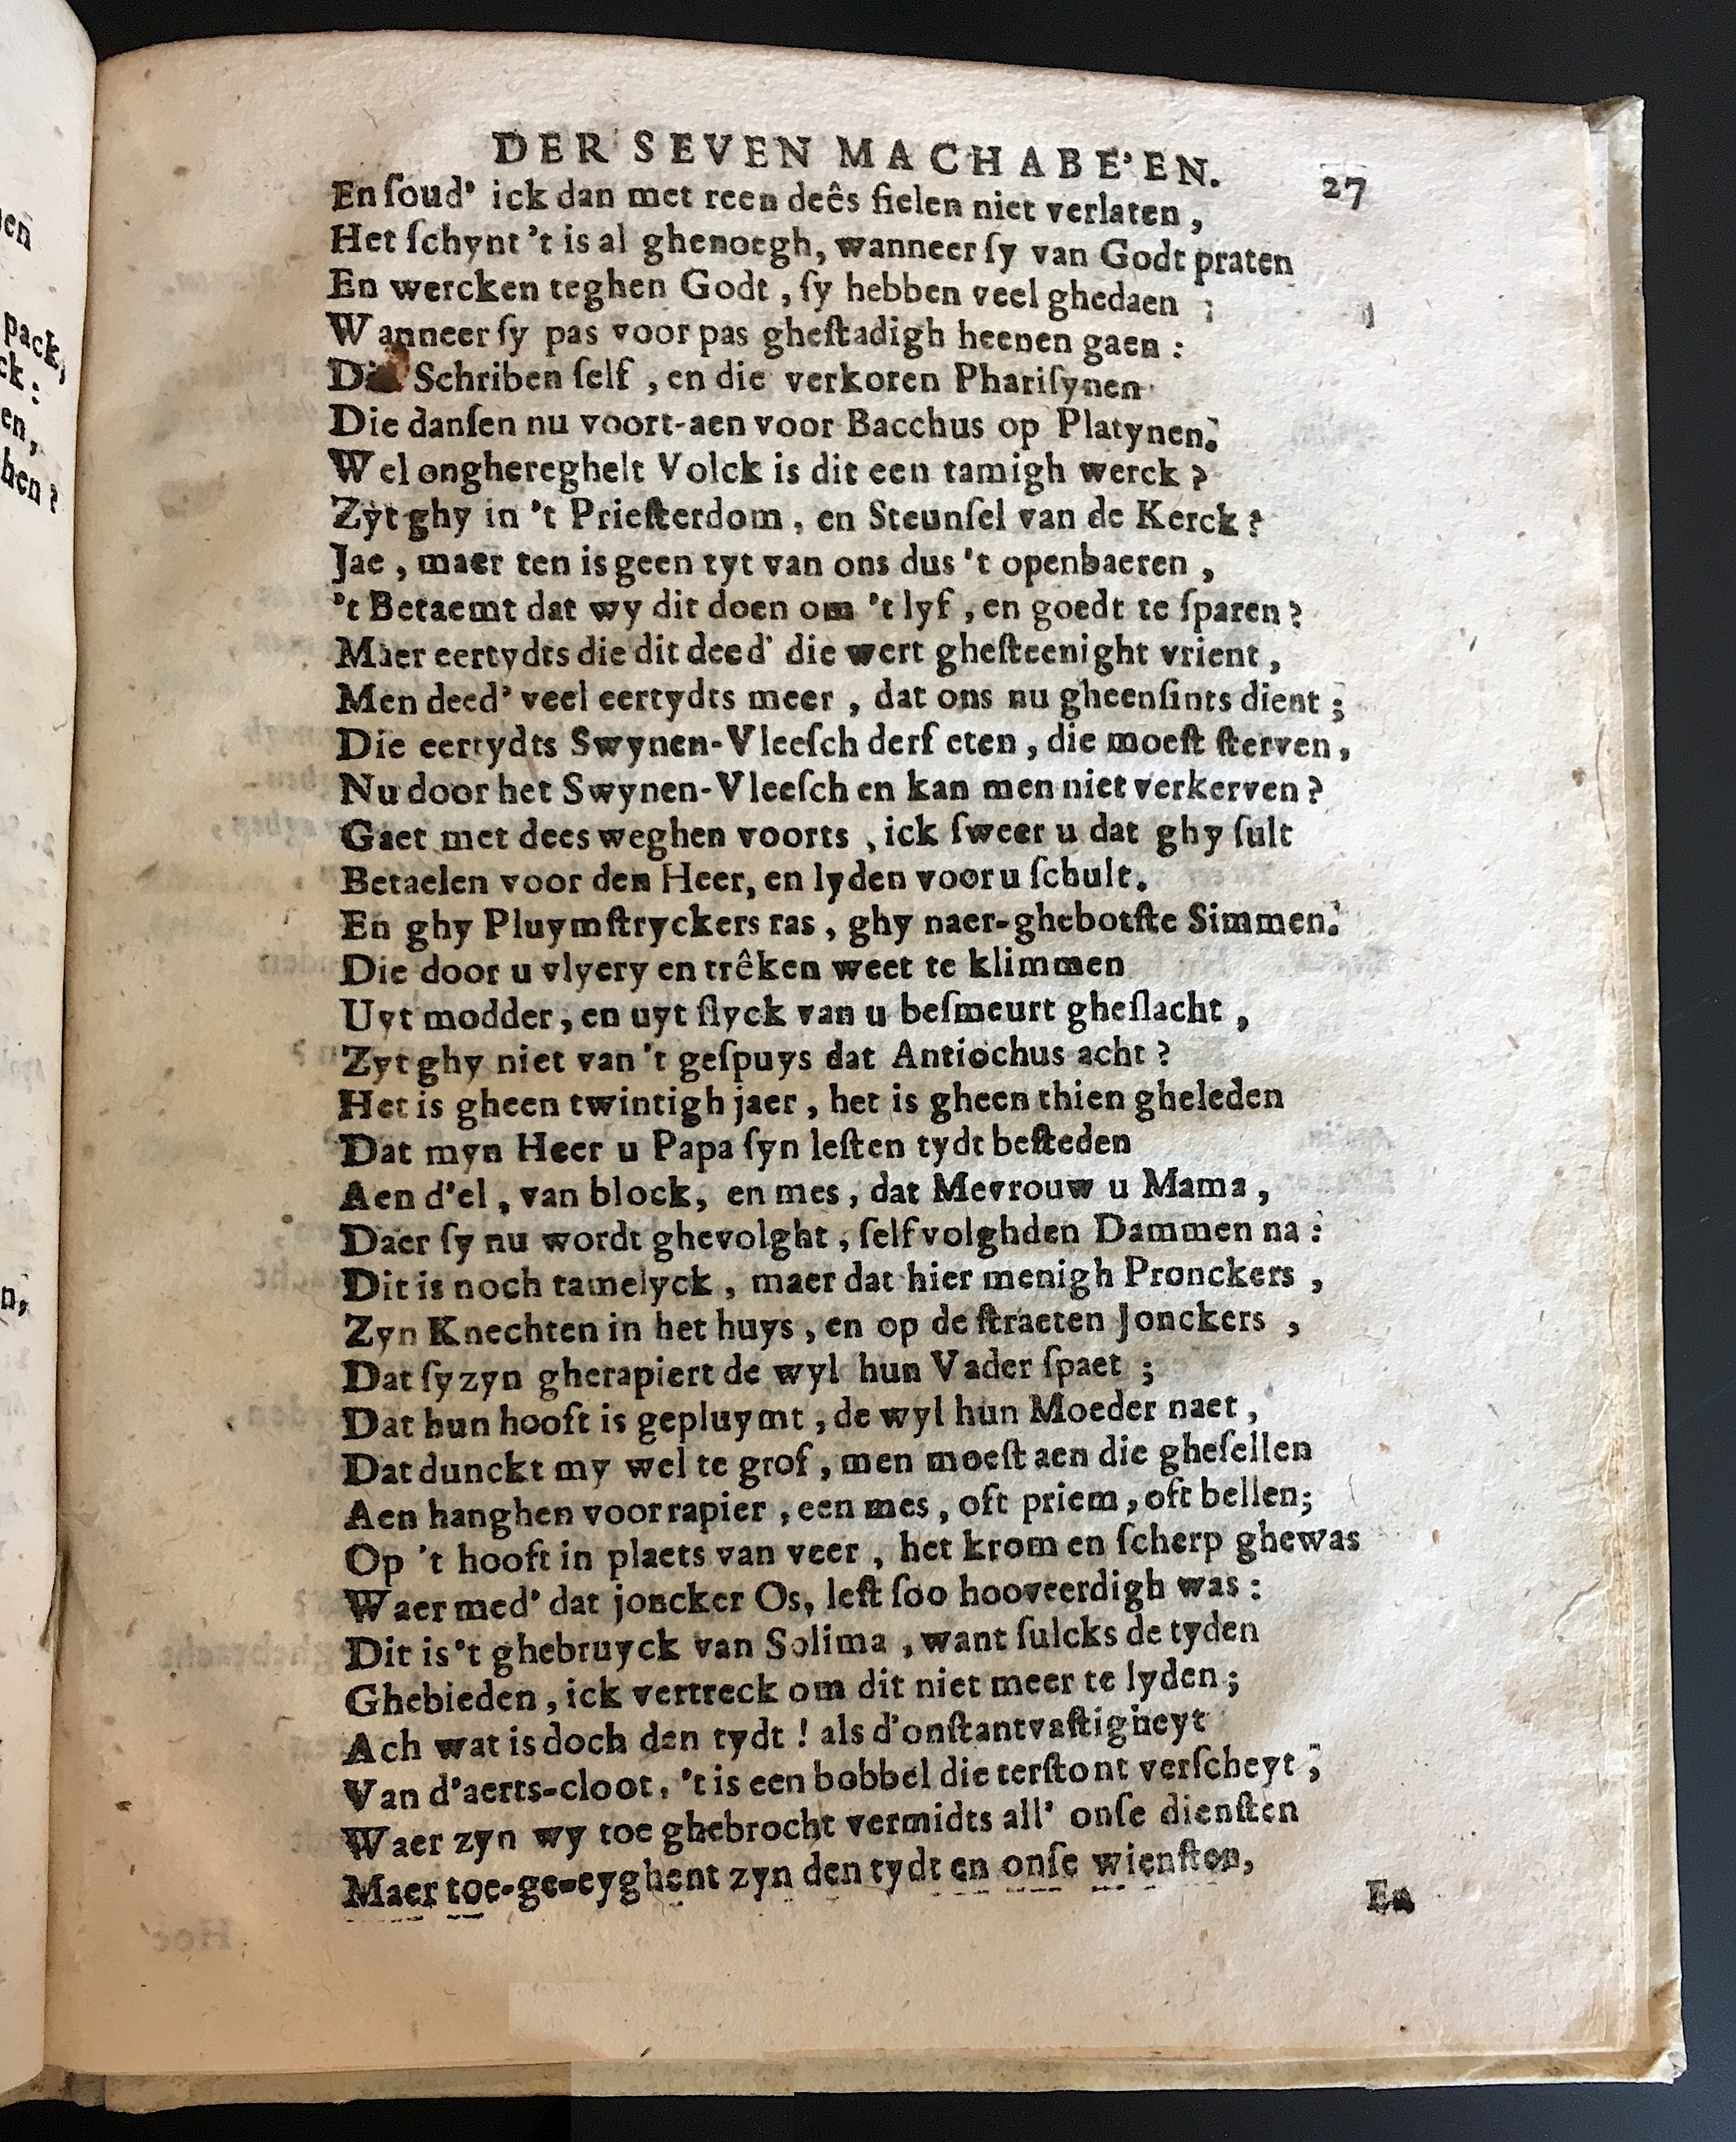 DER SEVEN MACHABE'EN. 27
En ſoud' ick dan met reen deês fielen niet verlaten,
Het ſchynt 't is al ghenoegh, wanneer ſy van Godt praten
En wercken teghen Godt, ſy hebben veel ghedaen ;
Wanneer ſy pas voor pas gheſtadigh heenen gaen :
Schriben ſelf, en die verkoren Phariſynen
Die danſen nu voort-aen voor Bacchus op Platynen.
Wel onghereghelt Volck is dit een tamigh werck ?
Zyt ghy in 't Prieſterdom, en Steunſel van de Kerck ?
Jae, maer ten is geen tyt van ons dus 't openbaeren,
't Betaemt dat wy dit doen om 't lyf, en goedt te ſparen ?
Maer eertydts die dit deed' die wert gheſteenight vrient,
Men deed' veel eertydts meer, dat ons nu gheenſints dient ;
Die eertydts Swynen-Vleeſch derf eten, die moeſt ſterven,
Nu door het Swynen-Vleeſch en kan men niet verkerven ?
Gaet met dees weghen voorts, ick ſweer u dat ghy ſult
Betaelen voor den Heer, en lyden voor u ſchult.
En ghy Pluymſtryckers ras, ghy naer-ghebotſte Simmen.
Die door u vlyery en trêken weet te klimmen
Uyt modder, en uyt ſlyck van u beſmeurt gheſlacht,
Zyt ghy niet van 't geſpuys dat Antiochus acht ?
Het is gheen twintigh jaer, het is gheen thien gheleden
Dat myn Heer u Papa ſyn leſten tydt beſteden
Aen d'el, van block, en mes, dat Mevrouw u Mama,
Daer ſy nu wordt ghevolght, ſelf volghden Dammen na :
Dit is noch tamelyck, maer dat hier menigh Pronckers,
Zyn Knechten in het huys, en op de ſtraeten Jonckers,
Dat ſy zyn gherapiert de wyl hun Vader ſpaet ;
Dat hun hooft is gepluymt, de wyl hun Moeder naet,
Dat dunckt my wel te grof, men moeſt aen die gheſellen
Aen hanghen voor rapier, een mes, oft priem, oft bellen;
Op 't hooft in plaets van veer, het krom en ſcherp ghewas
Waer med' dat joncker Os, leſt ſoo hooveerdigh was :
Dit is 't ghebruyck van Solima, want ſulcks de tyden
Ghebieden, ick vertreck om dit niet meer te lyden ;
Ach wat is doch den tydt ! als d'onſtantvaſtigheyt
Van d'aerts-cloot, 't is een bobbel die terſtont verſcheyt ;
Waer zyn wy toe ghebrocht vermidts all' onſe dienſten
Maer toe-ge-eyghent zyn den tydt en onſe wienſten,
En
Hoe
pen
pack,
ck :
en,
hen ?
n,